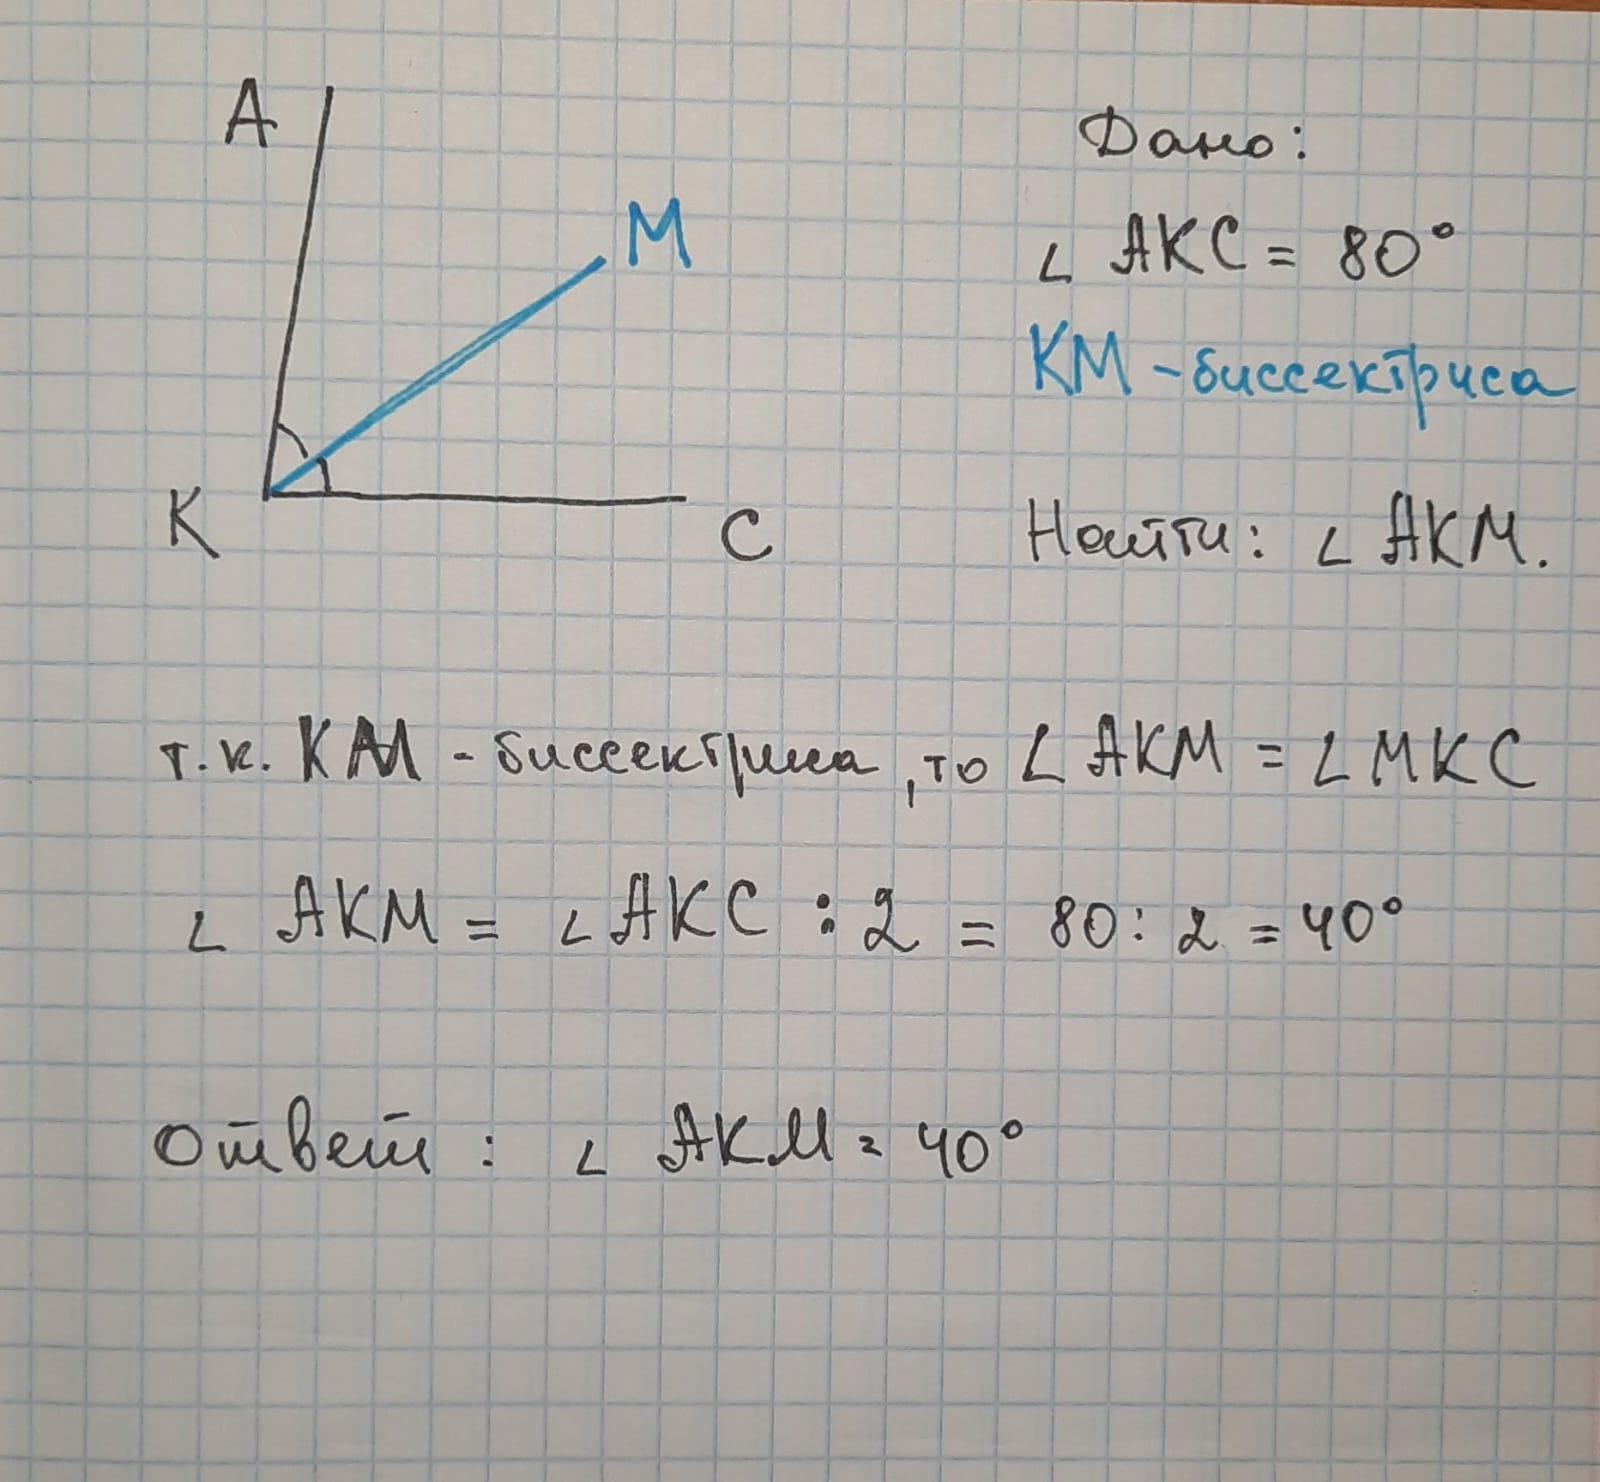 A
M
K
C
Дано:
∠ AKC = 80°
KM - биссектриса
Найти: ∠ AKM.
т.к. KM - биссектриса, то ∠ AKM = ∠ MKC
∠ AKM = ∠ AKC : 2 = 80 : 2 = 40°
Ответ : ∠ AKM = 40°